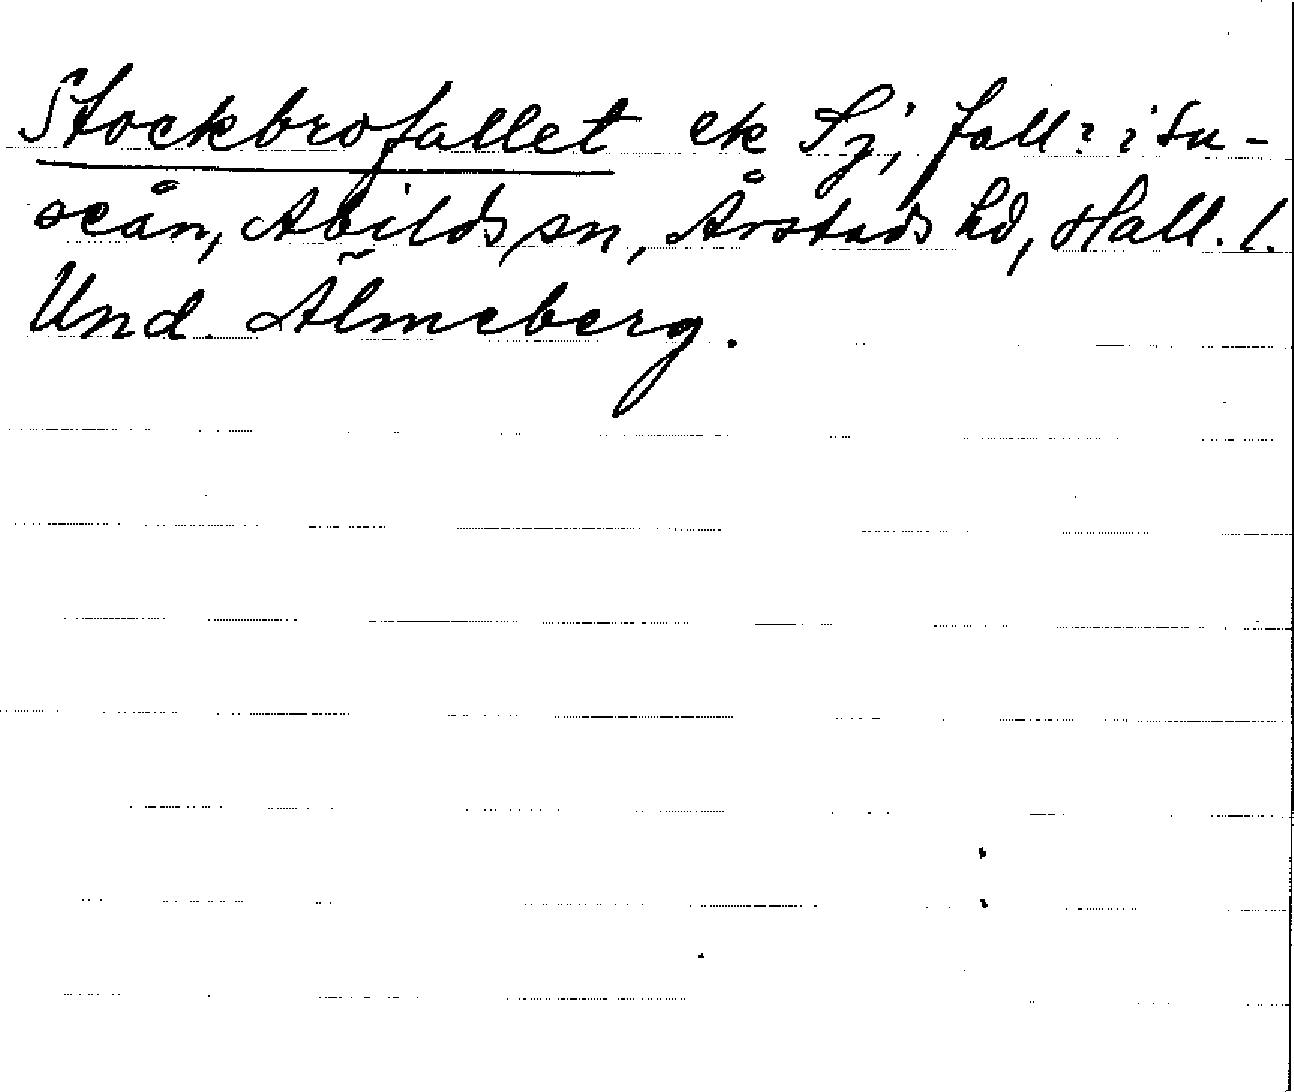 Stockbrofallet ek Sj; fall: i Su-
seån, Abilds sn, Årstads hd, Hall. l.
Und. Älmeberg.